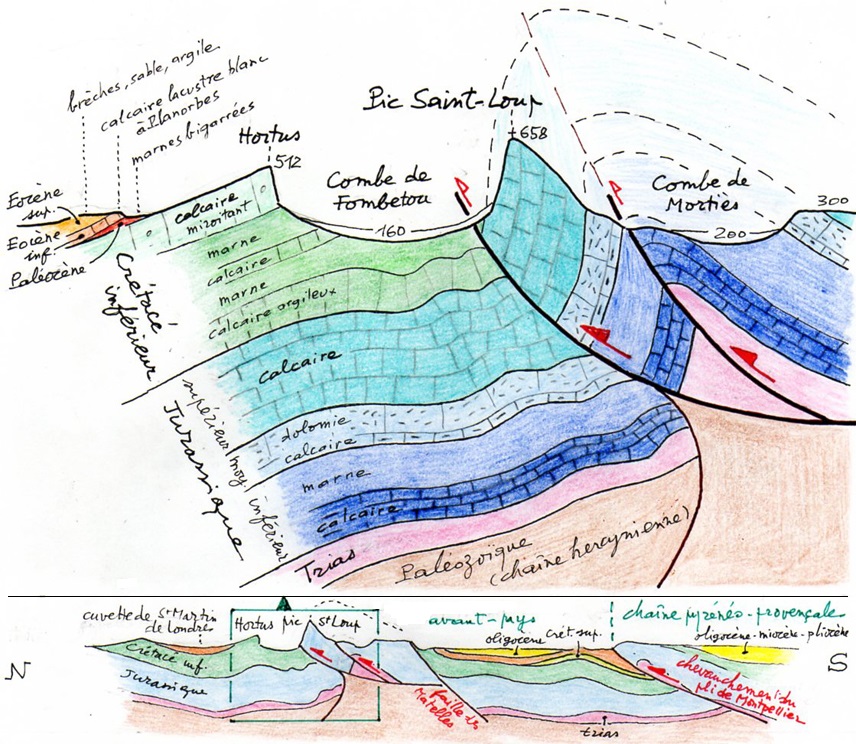 brèches, sable, argile
calcaire lacustre blanc
à Planorbes
marnes bigarrées
Hortus
512
Pic Saint-Loup
658
Combe de
Fombetou
160
Combe de
Mortiès
200
300
Eocène
sup.
Eocène
inf.
Paléocène
calcaire
miroitant
marne
calcaire
marne
calcaire argileux
Crétacé
inférieur
calcaire
dolomie
calcaire
marne
calcaire
supérieur
moy
inférieur
Jurassique
Trias
Paléozoïque
(chaîne hercynienne)
N
S
cuvette de St Martin
de Londres
Hortus
pic St Loup
avant-pays
oligocène
Crét. sup.
chaîne pyrénéo-provençale
oligocène-miocène-pliocène
Crétacé inf
Jurassique
faille des
Matelles
chevauchement du
pli de Montpellier
trias